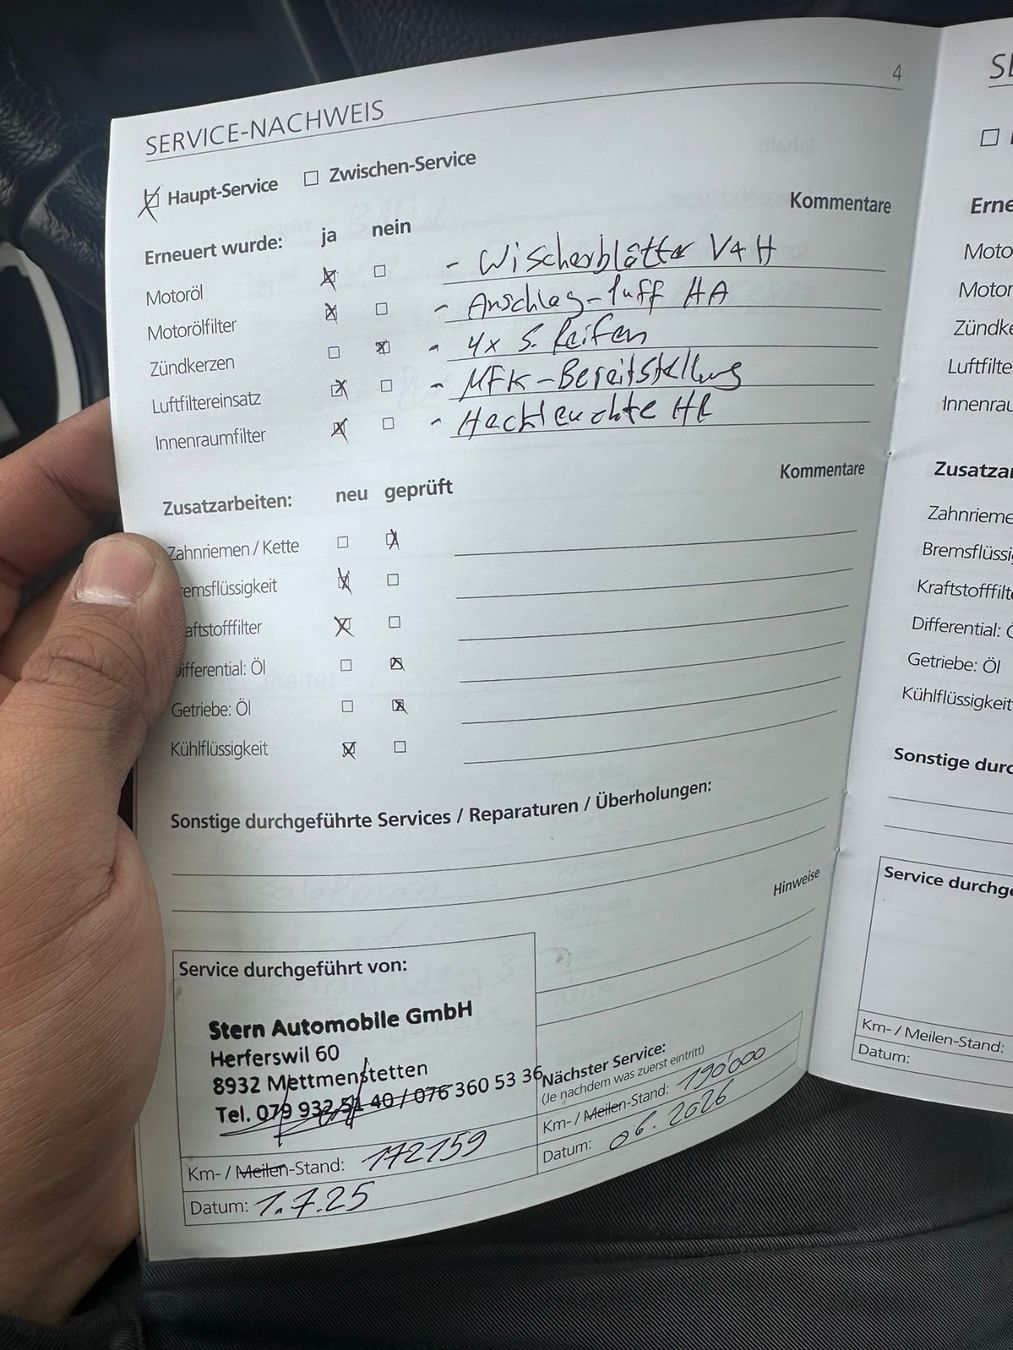 4
SERVICE-NACHWEIS
Haupt-Service Zwischen-Service
Kommentare
Erneuert wurde: ja nein
Motoröl - Wischerblätter V+H
Motorölfilter - Anschlag-Puff HA
Zündkerzen - 4x S. Reifen
Luftfiltereinsatz - MFK-Bereitstellung
Innenraumfilter - Heckleuchte HR
Kommentare
Zusatzarbeiten: neu geprüft
Zahnriemen / Kette
remsflüssigkeit
aftstofffilter
ifferential: Öl
Getriebe: Öl
Kühlflüssigkeit
Sonstige durchgeführte Services / Reparaturen / Überholungen:
Hinweise
Service durchgeführt von:
Stern Automobile GmbH
Herferswil 60
8932 Mettmenstetten
Tel. 079 932 51 40 / 076 360 53 36
Km- / Meilen-Stand: 172159
Datum: 1.7.25
Nächster Service:
(Je nachdem was zuerst eintritt)
Km- / Meilen-Stand: 190'000
Datum: 06.2026
SE
Erne
Moto
Motor
Zündke
Luftfilte
Innenrau
Zusatzar
Zahnrieme
Bremsflüssig
Kraftstofffilte
Differential: Ö
Getriebe: Öl
Kühlflüssigkeit
Sonstige durc
Service durchge
Km- / Meilen-Stand:
Datum: